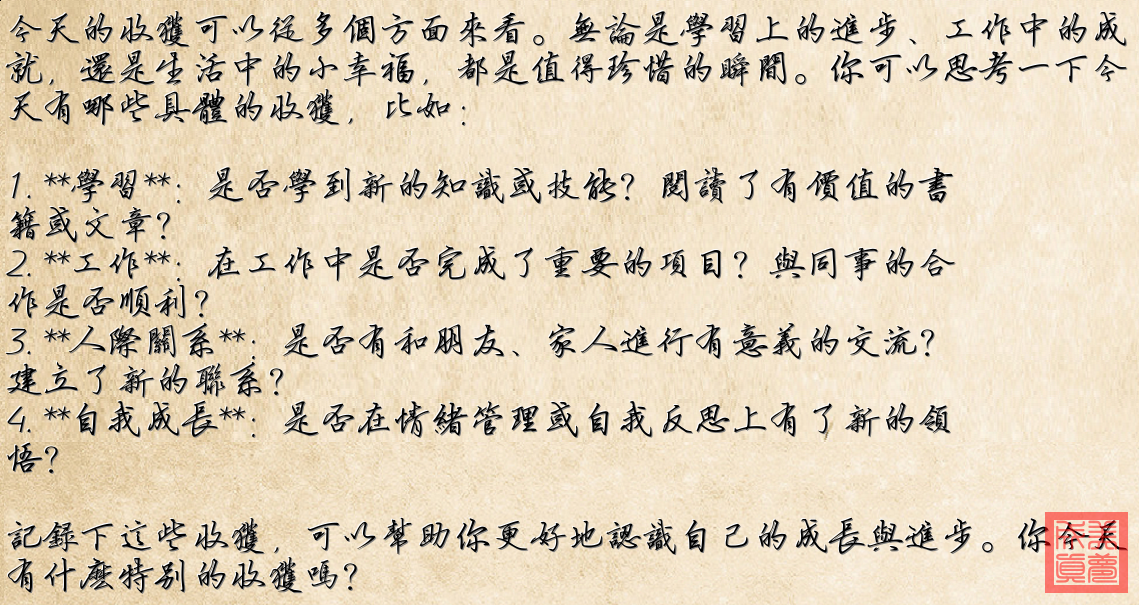 今天的收獲可以從多個方面來看。無論是學習上的進步、工作中的成
就，還是生活中的小幸福，都是值得珍惜的瞬間。你可以思考一下今
天有哪些具體的收獲，比如：
1. **學習**：是否學到新的知識或技能？閱讀了有價值的書
籍或文章？
2. **工作**：在工作中是否完成了重要的項目？與同事的合
作是否順利？
3. **人際關系**：是否有和朋友、家人進行有意義的交流？
建立了新的聯系？
4. **自我成長**：是否在情緒管理或自我反思上有了新的領
悟？
記録下這些收獲，可以幫助你更好地認識自己的成長與進步。你今天
有什麽特别的收獲嗎？